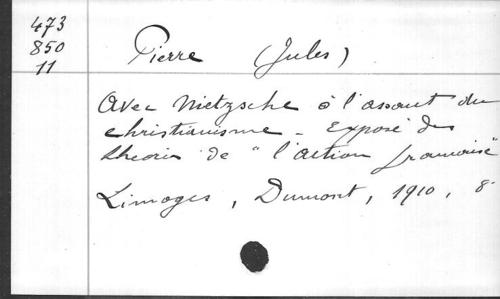 473
850
11
Pierre (Jules)
Avec Nietzsche à l'assaut du
christianisme - Exposé des
theories de "l'action française"
Limoges, Dumont, 1910, 8°